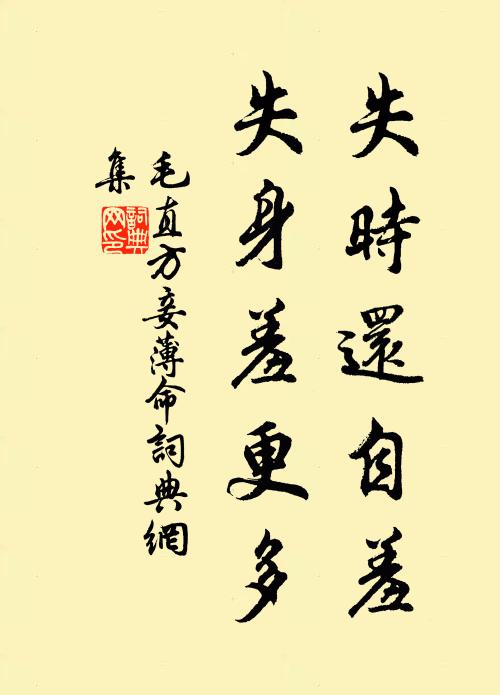 失時還自羞
失身羞更多
毛直方妾薄命詞典網
集
詞典
网印